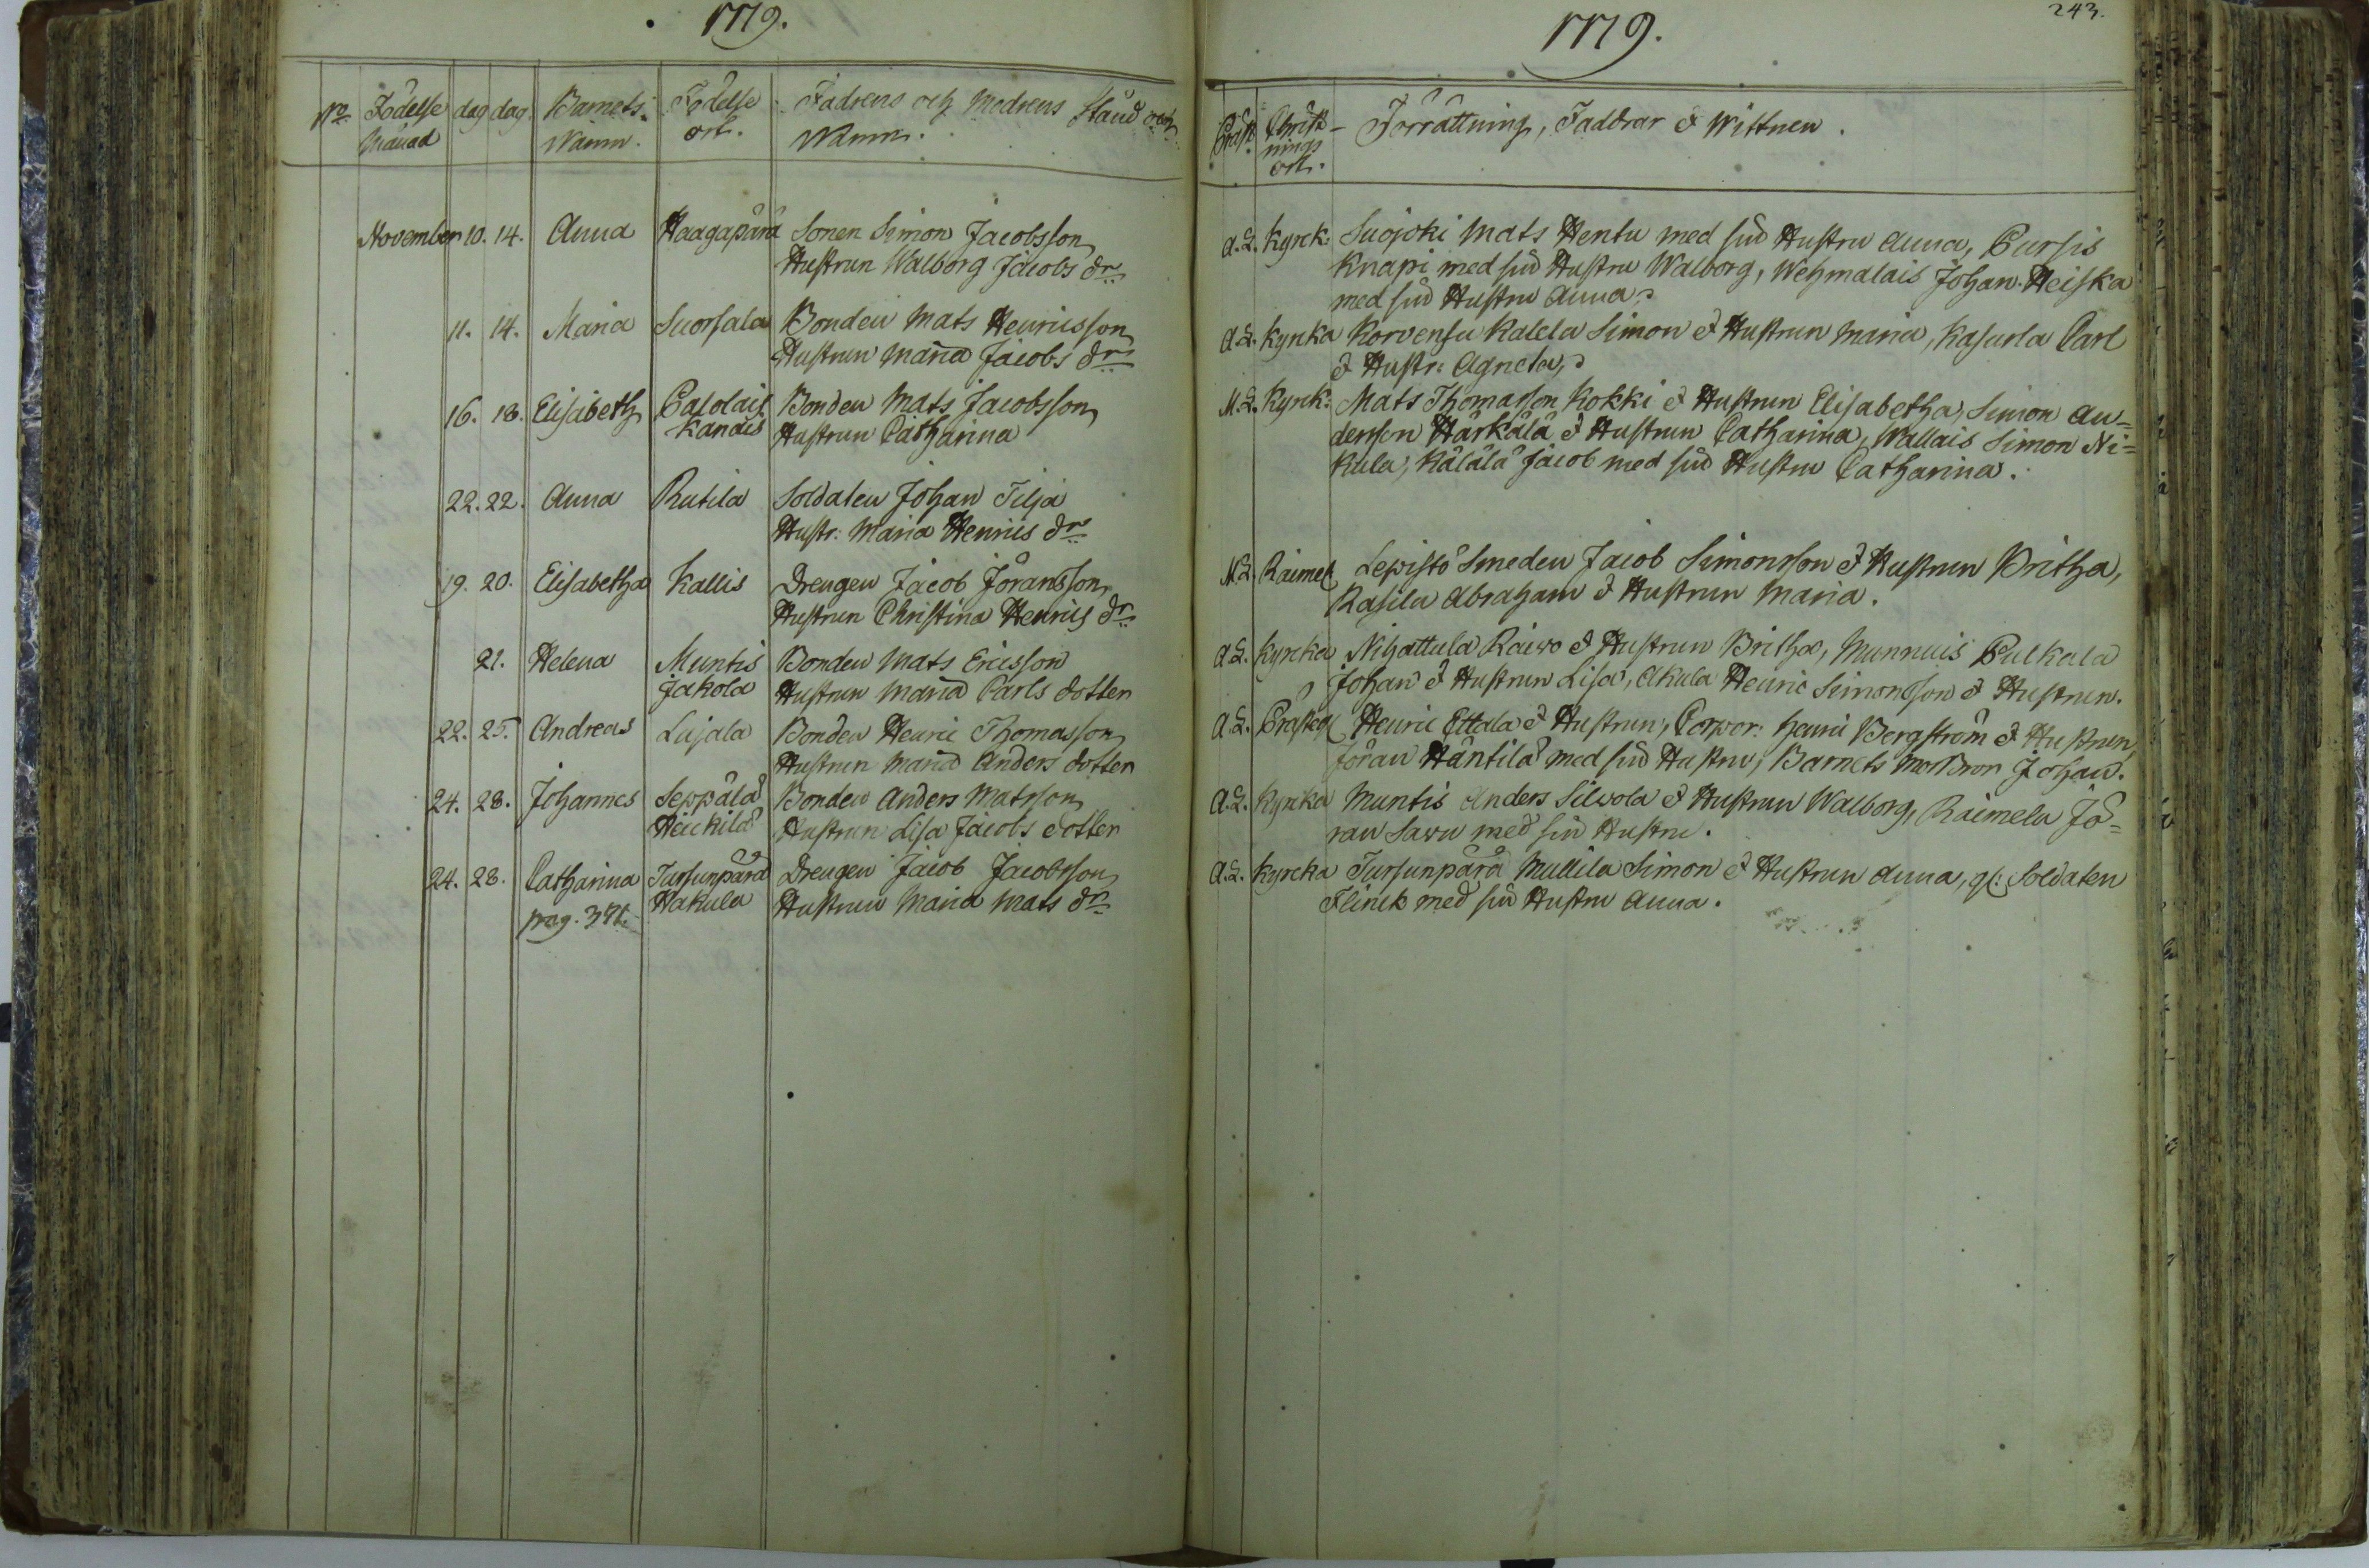 1779.
No. Födelse Månad dag dag Barnets Namn. Födelse ort. Fadrens och Modrens Stånd och Namn.
November 10. 14. Anna Haagapärä Sonen Simon Jacobsson
Hustrun Walborg Jacobs dr
11. 14. Maria Suorsala Bonden Mats Henricsson
Hustrun Maria Jacobs dr
16. 18. Elisabeth Calolais Bonden Mats Jacobsson
Kandis Hustrun Catharina
22. 22. Anna Rutila Soldaten Johan Tilja
Hustr: Maria Henrics dr
19. 20. Elisabetha Kallis Drengen Jacob Jöransson
Hustrun Christina Henrics dr
21. Helena Muntis Bonden Mats Ericsson
Jakola Hustrun Maria Carls dotter
22. 25. Andreas Lujala Bonden Henric Thomasson
Hustrun Maria Anders dotter
24. 28. Johannes Seppälä Bonden Anders Matsson
Heickilä Hustrun Lisa Jacobs dotter
24. 28. Catharina Tursunpärä Drengen Jacob Jacobsson
pag. Hakula Hustrun Maria Mats dr
243.
1779.
Präst. Christnings ort. Förrättning, Faddrar & Wittnen.
A.L. Kyrck: Suojoki Mats Hentu med sin Hustru Anna, Cursis
Knapi med sin Hustru Walborg, Wehmalais Johan Heiska
med sin Hustru Anna.
A.L. Kyrcka Korvensu Kalela Simon & Hustrun Maria, Kasurla Carl
& Hustr: Agneta,
M.L. Kyrk: Mats Thomasson Kokki & Hustrun Elisabetha, Simon An=
dersson Härkälä & Hustrun Catharina, Wallais Simon Ni=
kula, Kälälä Jacob med sin Hustru Catharina.
M.L. Raimel Lepistö Smeden Jacob Simonsson & Hustrun Britha,
Rasila Abraham & Hustrun Maria.
A.L. Kyrcka Nihattula Raiwo & Hustrun Britha, Munnuis Pulkala
Johan & Hustrun Lisa, Akula Henric Simonsson & Hustrun.
A.L. Prästeg Henric Ettala & Hustrun, Corpor: Henric Bergström & Hustrun,
Jöran Häntilä med sin Hustru, Barnets Morbror Johan.
A.L. Kyrcka Muntis Anders Silwola & Hustrun Walborg, Raimela Jö=
ran Savu med sin Hustru.
A.L. Kyrcka Tursunpärä Mullila Simon & Hustrun Anna, gl: Soldaten
Flinck med sin Hustru Anna.